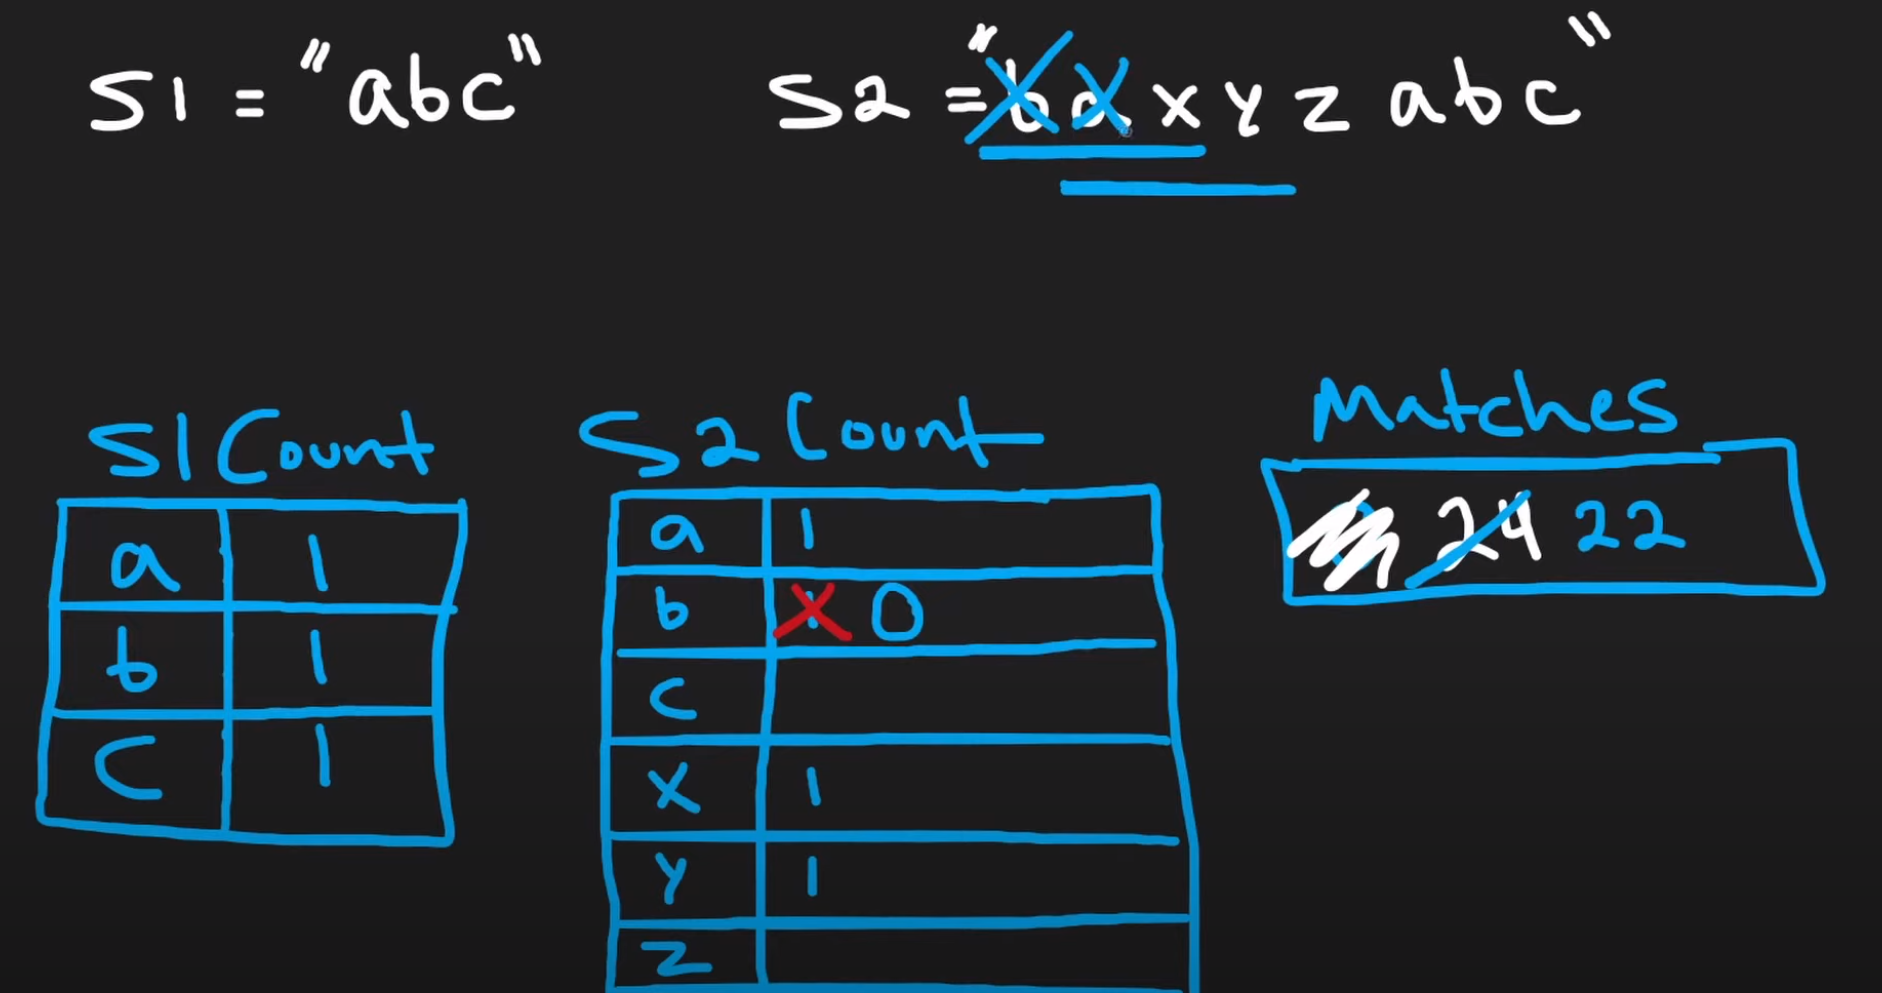 S1 = "abc"
S2 = "baxyzabc"
S1 Count
a 1
b 1
c 1
S2 Count
a 1
b 1 0
c
x 1
y 1
z
Matches
24 22